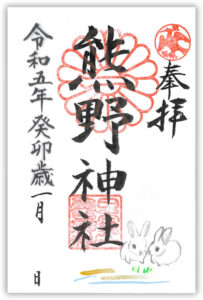 奉拝
熊野神社
令和五年 癸卯歳 一月 日